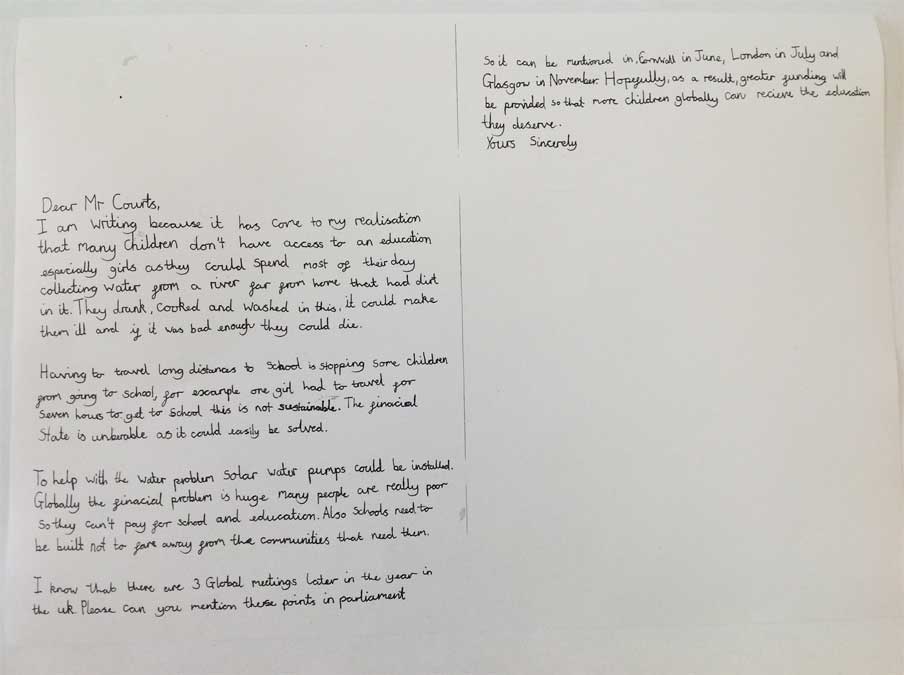 Dear Mr Courts,
I am writing because it has come to my realisation
that many children don't have access to an education
especially girls as they could spend most of their day
collecting water from a river far from home that had dirt
in it. They drank, cooked and washed in this, it could make
them ill and if it was bad enough they could die.
Having to travel long distances to school is stopping some children
from going to school, for example one girl had to travel for
seven hours to get to school this is not sustainable. The finacial
state is unberable as it could easily be solved.
To help with the water problem solar water pumps could be installed.
Globally the finacial problem is huge many people are really poor
so they can't pay for school and education. Also schools need to
be built not to fare away from the communities that need them.
I know that there are 3 Global meetings later in the year in
the uk. Please can you mention these points in parliament
so it can be mentioned in, Cornwall in June, London in July and
Glasgow in November. Hopefully, as a result, greater funding will
be provided so that more children globally can recieve the education
they deserve.
Yours Sincerely